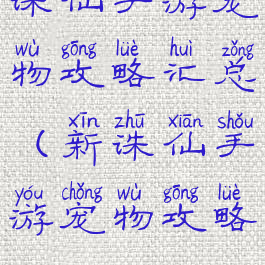 诛仙手游宠
wù gōng lüè huì zǒng
物攻略汇总
xīn zhū xiān shǒu
(新诛仙手
yóu chǒng wù gōng lüè
游宠物攻略